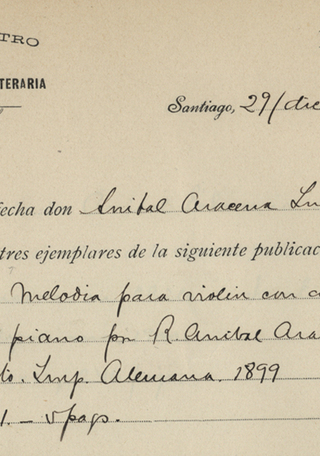 TRO
TERARIA
Santiago, 29/dic
fecha don Anibal Aracena In
tres ejemplares de la siguiente publicac
Melodia para violin con a
piano por R. Anibal Ara
to. Imp. Alemana. 1899
1. — v pags.